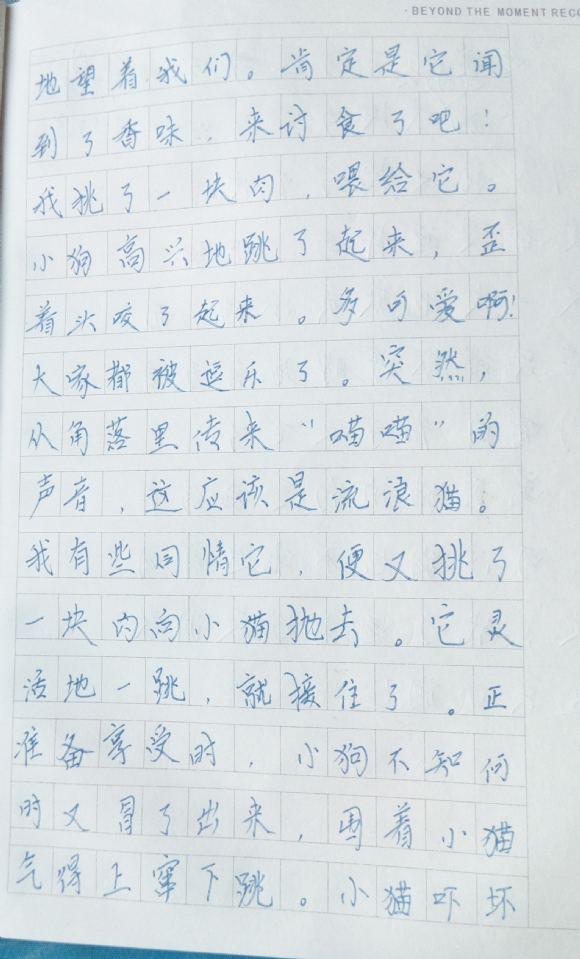 · BEYOND THE MOMENT RECO
地望着我们。肯定是它闻
到了香味，来讨食了吧！
我挑了一块肉，喂给它。
小狗高兴地跳了起来，歪
着头咬了起来。多可爱啊！
大家都被逗乐了。突然，
从角落里传来“喵喵”的
声音，这应该是流浪猫。
我有些同情它，便又挑了
一块肉向小猫抛去。它灵
活地一跳，就接住了。正
准备享受时，小狗不知何
时又冒了出来，围着小猫
气得上窜下跳。小猫吓坏